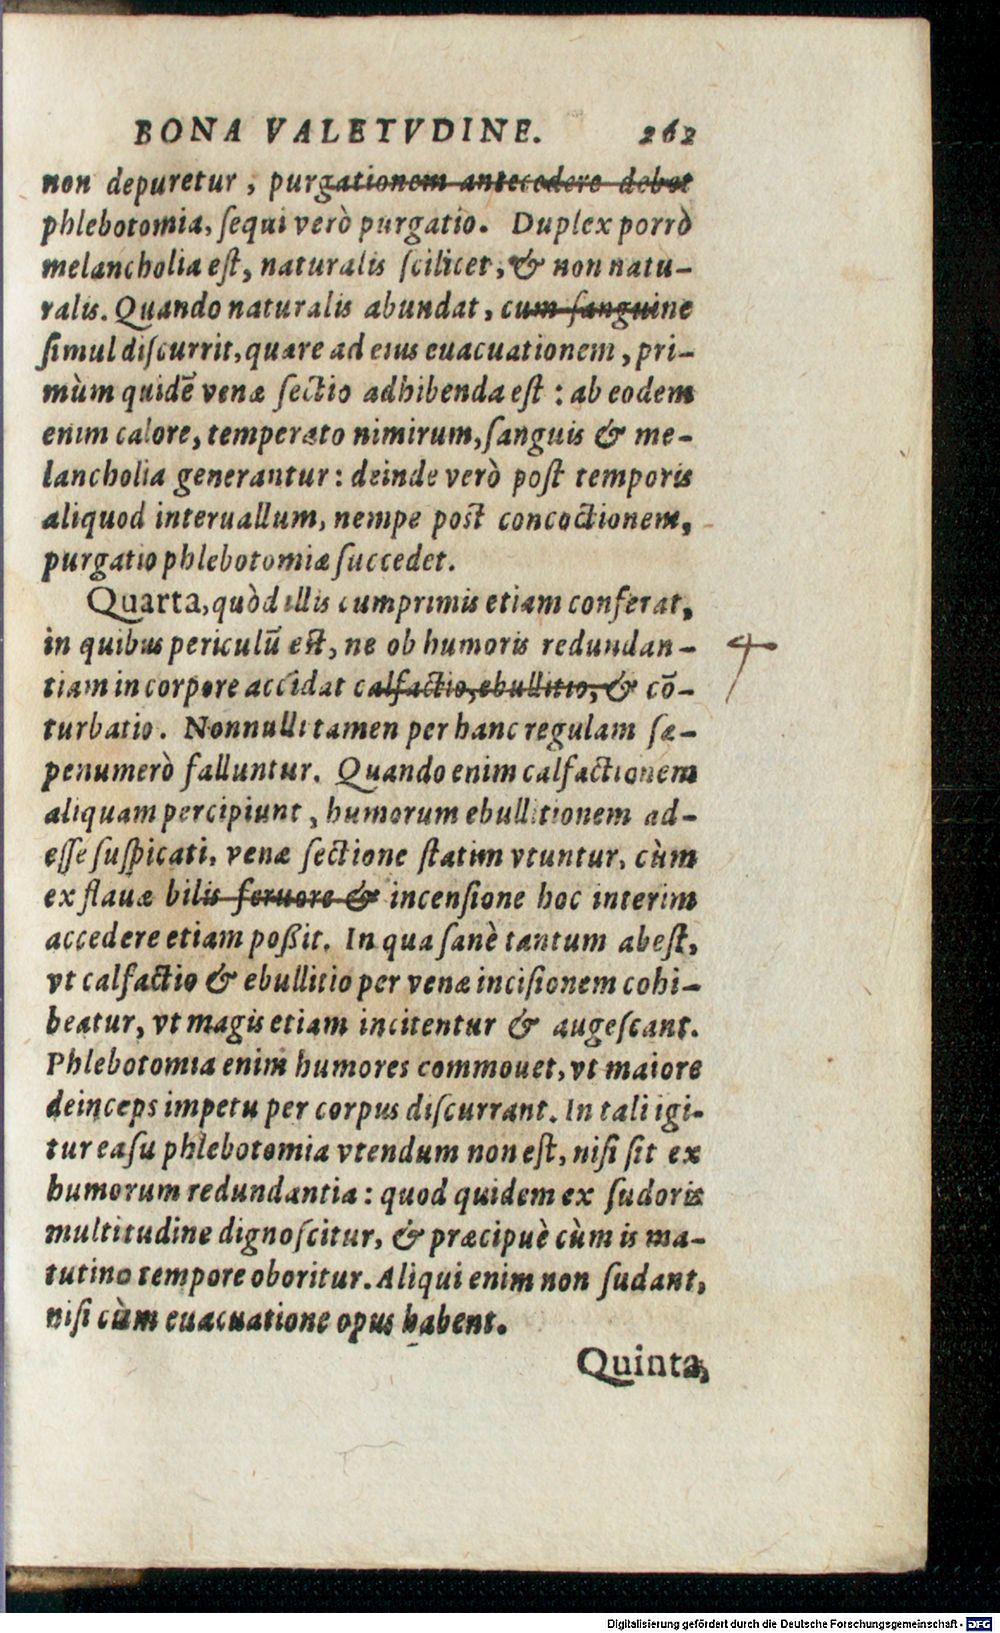 BONA VALETVDINE. 262
non depuretur, purgationem antecedere debet
phlebotomia, ſequi verò purgatio. Duplex porrò
melancholia eſt, naturalis ſcilicet, & non natu-
ralis. Quando naturalis abundat, cum ſanguine
ſimul diſcurrit, quare ad eius euacuationem, pri-
mùm quidē venæ ſectio adhibenda eſt : ab eodem
enim calore, temperato nimirum, ſanguis & me-
lancholia generantur: deinde verò poſt temporis
aliquod interuallum, nempe poſt concoctionem,
purgatio phlebotomiæ ſuccedet.
Quarta, quòd illis cumprimis etiam conferat,
in quibus periculū eſt, ne ob humoris redundan-
tiam in corpore accidat calfactio, ebullitio, & cō-
turbatio. Nonnulli tamen per hanc regulam ſæ-
penumerò falluntur. Quando enim calfactionem
aliquam percipiunt, humorum ebullitionem ad-
eſſe ſuſpicati, venæ ſectione ſtatim vtuntur, cùm
ex flauæ bilis feruore & incenſione hoc interim
accedere etiam poßit. In qua ſanè tantum abeſt,
vt calfactio & ebullitio per venæ inciſionem cohi-
beatur, vt magis etiam incitentur & augeſcant.
Phlebotomia enim humores commouet, vt maiore
deinceps impetu per corpus diſcurrant. In tali igi-
tur eaſu phlebotomia vtendum non eſt, niſi ſit ex
humorum redundantia: quod quidem ex ſudoris
multitudine dignoſcitur, & præcipuè cùm is ma-
tutino tempore oboritur. Aliqui enim non ſudant,
niſi cùm euacuatione opus habent.
Quinta,
Digitalisierung gefördert durch die Deutsche Forschungsgemeinschaft - DFG